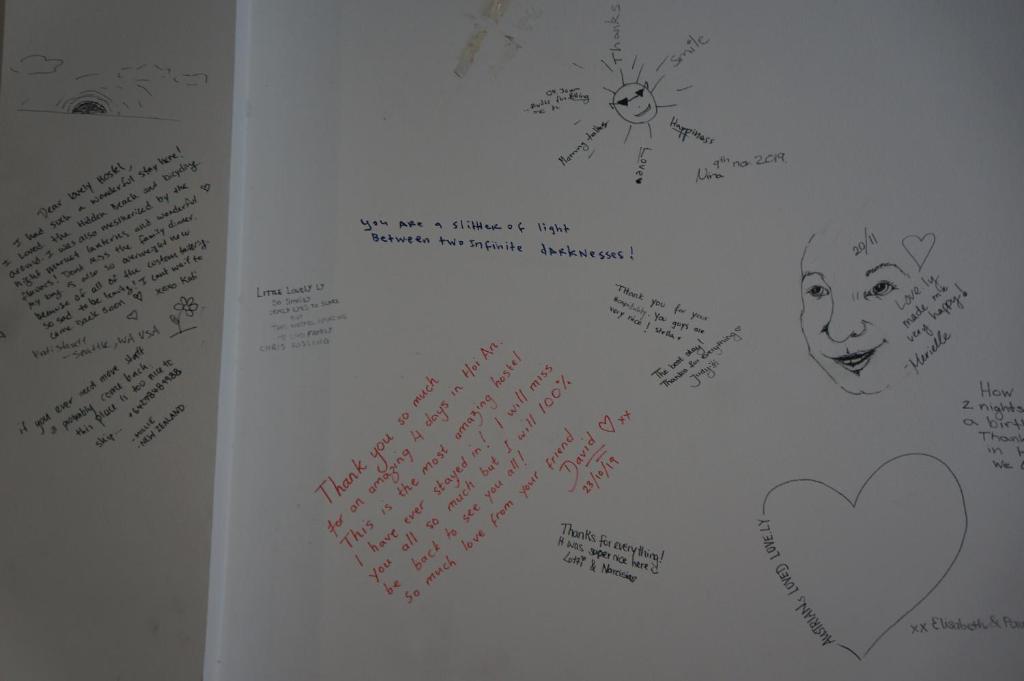 Dear Lovely Hostel,
I had such a wonderful stay here!
I Loved the Hidden Beach and bicycling
around. I was also mesmerized by the
night market lanterns and wonderful
flavors! Dont miss the family dinner.
My bag is also so overweight now
because of all of the custom tailoring.
So sad to be leaving! I cant wait to
come back soon! ♡ xoxo Kati
- Seattle, WA USA
if you ever need more staff
probably come back
this place is too nice to
skip...
NEW ZEALAND
Thanks
Smile
Morning talks
Happiness
Love
9th nov 2019.
Nina
You ARE a slitter of light
Between two Infinite darknesses!
LITTLE LOVELY LY
SO
CHRIS
Thank you for your
hospitality. You guys are
very nice! Stella
The best stay!
Thanks for everything
20/11
♡
Lovely
made me
very happy!
- Merielle
Thank you so much
for an amazing 4 days in Hoi An.
This is the most amazing hostel
I have ever stayed in! I will miss
you all so much but I will 100%
be back to see you all!
so much love from your friend
David ♡ xx
23/10/19
Thanks for everything!
It was super nice here
Lotti & Narcisius
How
2 nights
a birth
Thank
in h
We
AUSTRIANS LOVED LOVELY
xx Elisabeth &